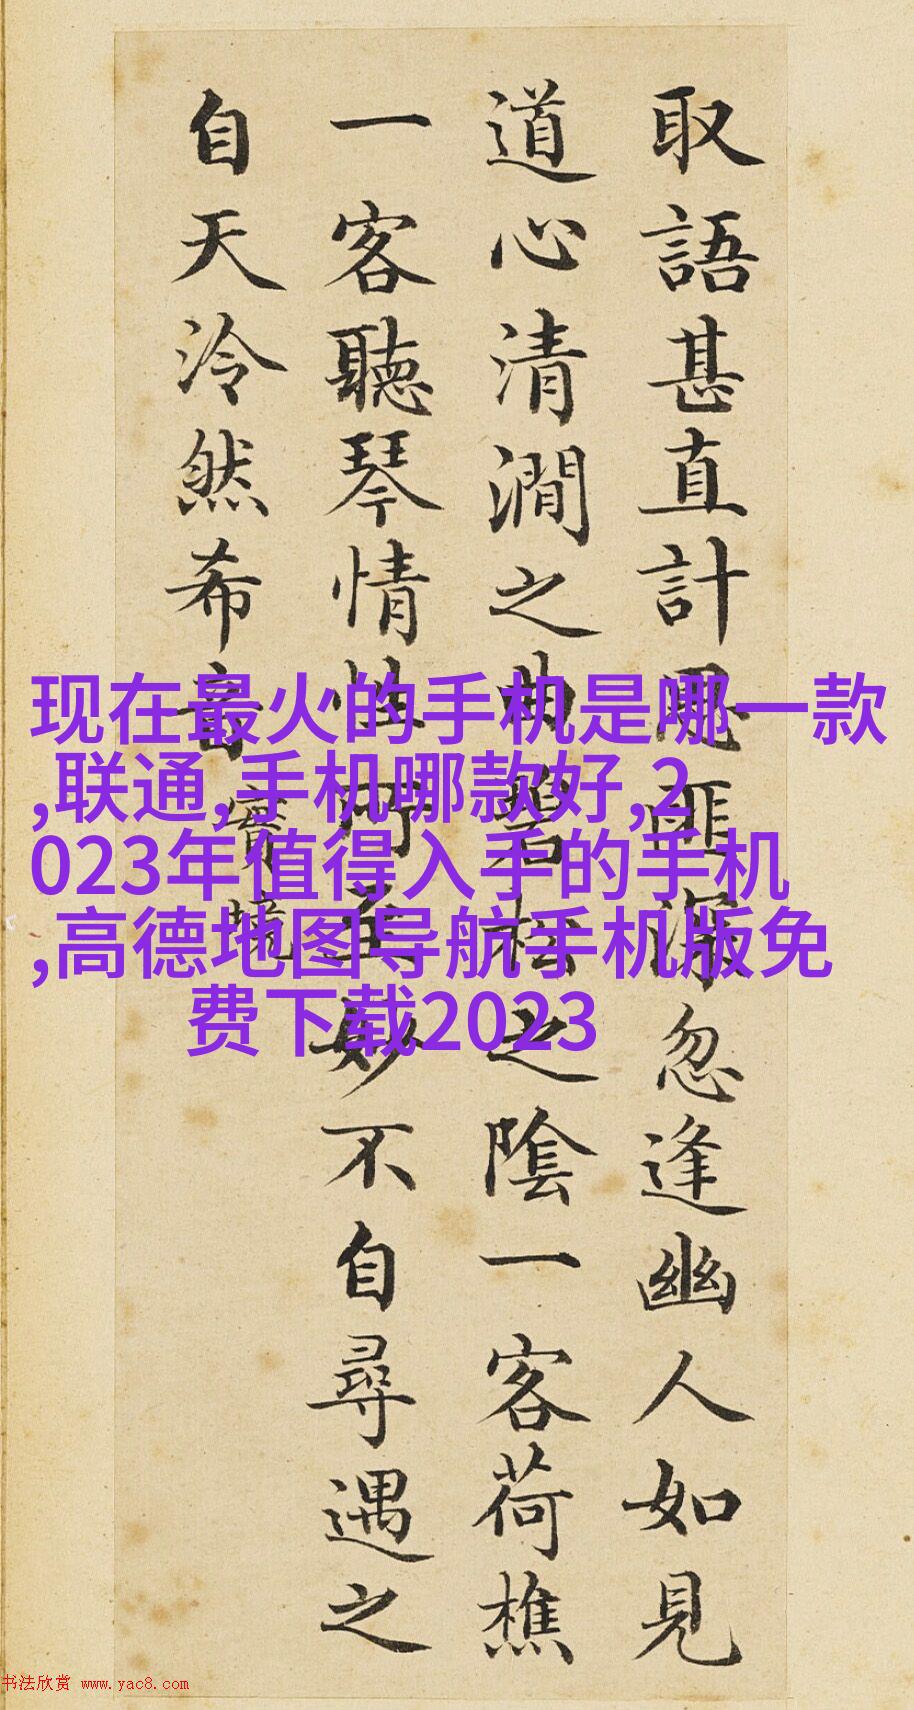 取語甚直計思匪深忽逢幽人如見
道心清澗之曲碧松之陰一客荷樵
一客聽琴情性所至妙不自尋遇之
自天泠然希音
實境
现在最火的手机是哪一款
,联通,手机哪款好,2
023年值得入手的手机
,高德地图导航手机版免
费下载2023
书法欣赏 www.yac8.com